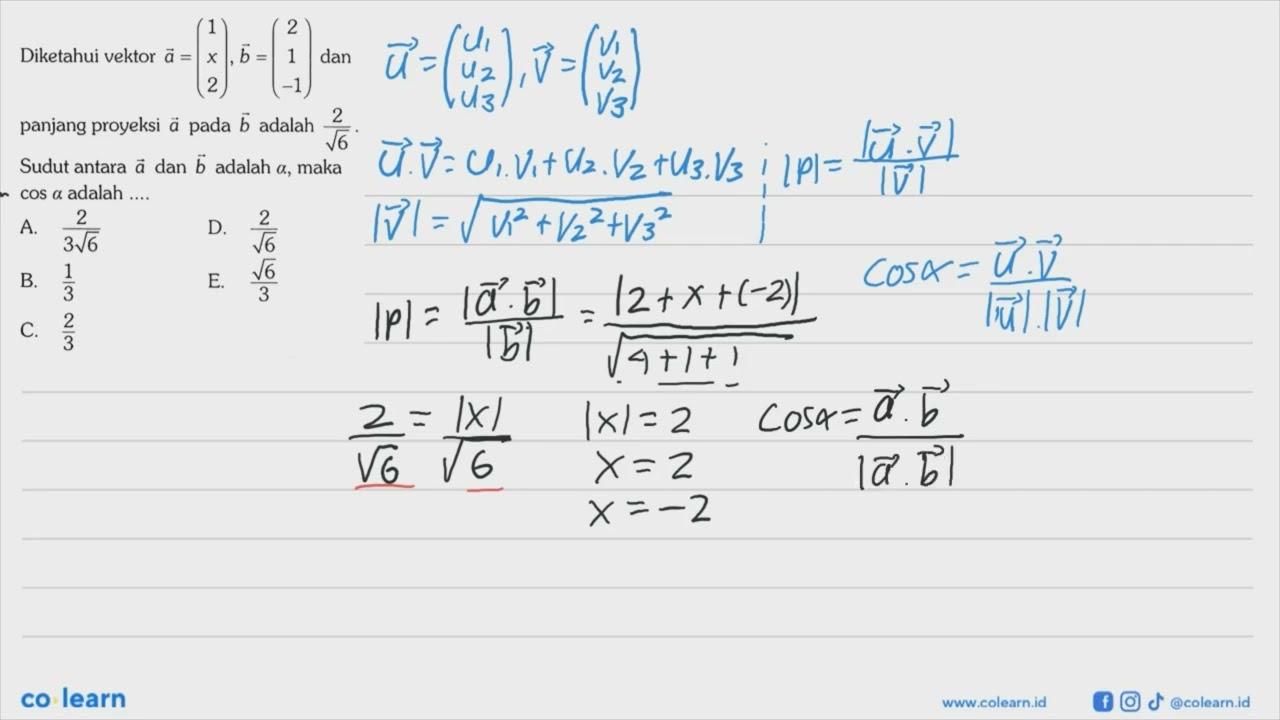 Diketahui vektor \vec{a} = \begin{pmatrix} 1 \\ x \\ 2 \end{pmatrix}, \vec{b} = \begin{pmatrix} 2 \\ 1 \\ -1 \end{pmatrix} dan
panjang proyeksi \vec{a} pada \vec{b} adalah \frac{2}{\sqrt{6}}.
Sudut antara \vec{a} dan \vec{b} adalah α, maka
cos α adalah ....
A. \frac{2}{3\sqrt{6}} D. \frac{2}{\sqrt{6}}
B. \frac{1}{3} E. \frac{\sqrt{6}}{3}
C. \frac{2}{3}
\vec{u} = \begin{pmatrix} u_1 \\ u_2 \\ u_3 \end{pmatrix}, \vec{v} = \begin{pmatrix} v_1 \\ v_2 \\ v_3 \end{pmatrix}
\vec{u}.\vec{v} = u_1.v_1 + u_2.v_2 + u_3.v_3 ; |p| = \frac{|\vec{u}.\vec{v}|}{|\vec{v}|}
|\vec{v}| = \sqrt{v_1^2 + v_2^2 + v_3^2}
cos α = \frac{\vec{u}.\vec{v}}{|\vec{u}|.|\vec{v}|}
|p| = \frac{|\vec{a}.\vec{b}|}{|\vec{b}|} = \frac{|2 + x + (-2)|}{\sqrt{4 + 1 + 1}}
\frac{2}{\sqrt{6}} = \frac{|x|}{\sqrt{6}} |x| = 2 cos α = \frac{\vec{a}.\vec{b}}{|\vec{a}.\vec{b}|}
x = 2
x = -2
co learn
www.colearn.id @colearn.id